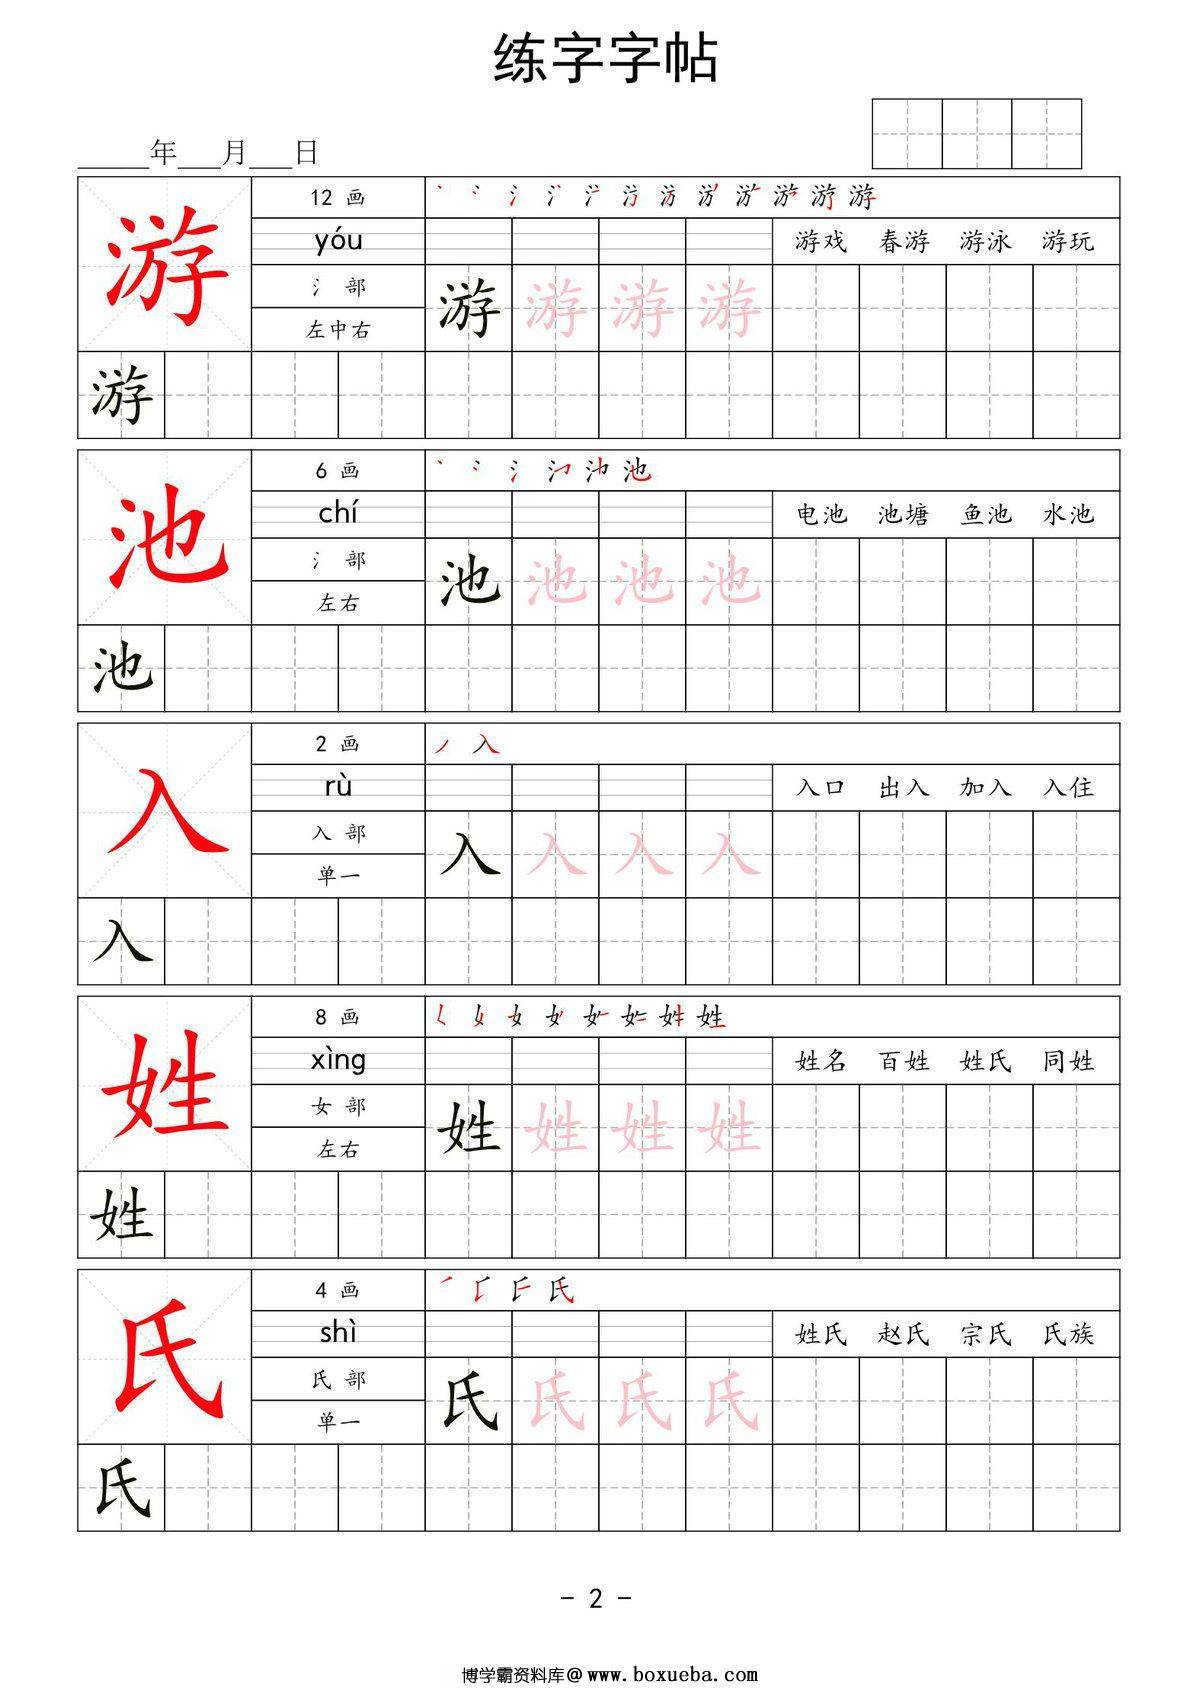 练字字帖
______年___月___日
12 画
yóu
游戏 春游 游泳 游玩
游
氵 部
左中右
游 游 游 游
游
6 画
chí
电池 池塘 鱼池 水池
池
氵 部
左右
池 池 池 池
池
2 画
丿 入
rù
入口 出入 加入 入住
入
入 部
单一
入 入 入 入
入
8 画
xìng
姓名 百姓 姓氏 同姓
姓
女 部
左右
姓 姓 姓 姓
姓
4 画
shì
姓氏 赵氏 宗氏 氏族
氏
氏 部
单一
氏 氏 氏 氏
氏
- 2 -
博学霸资料库@www.boxueba.com